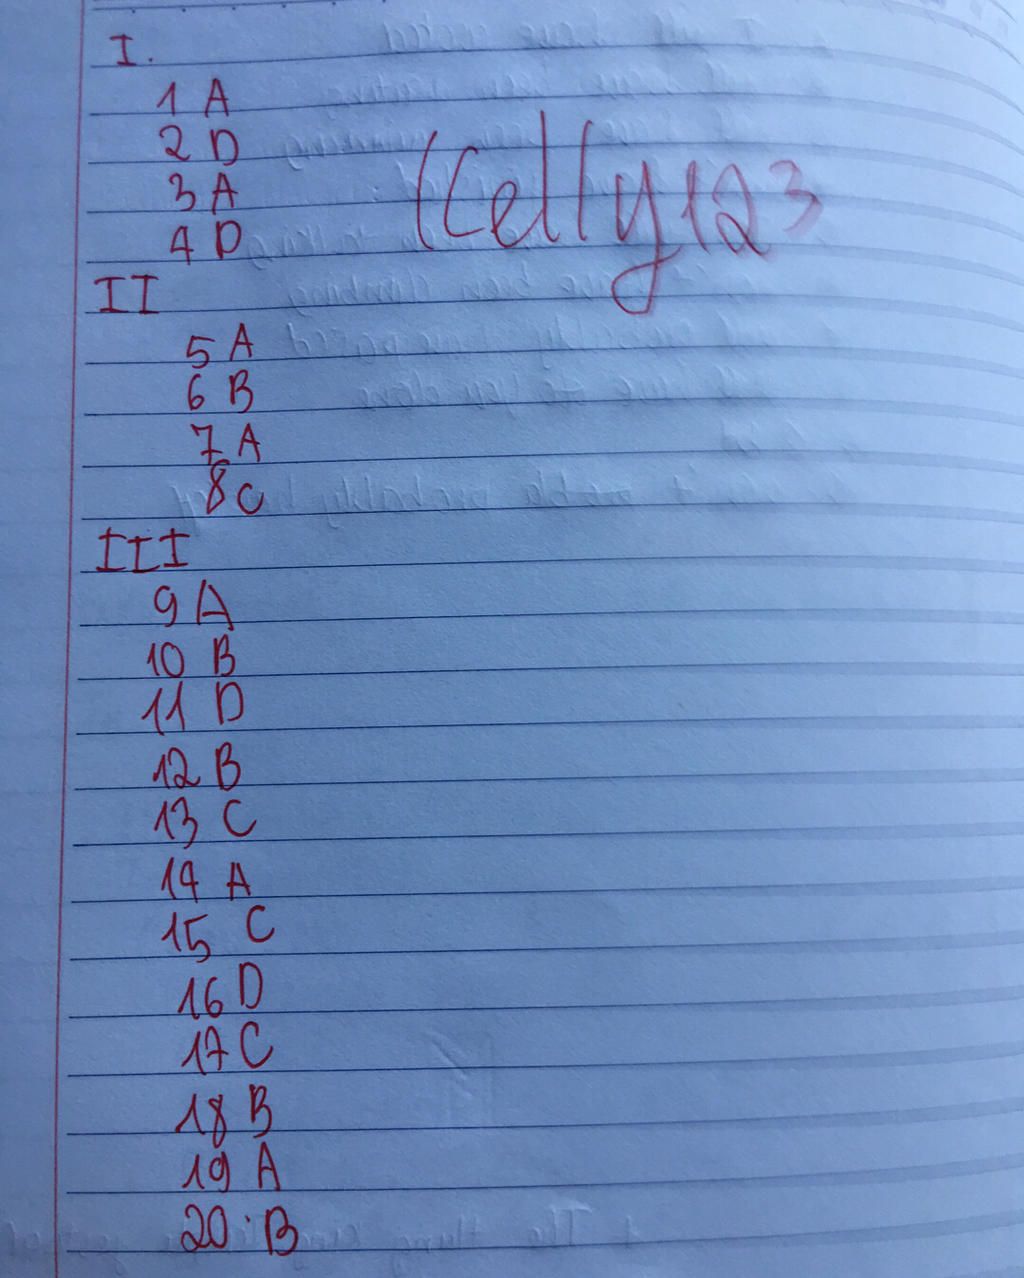 I.
1 A
2 D
3 A
4 D
Kelly123
II
5 A
6 B
7 A
8 C
III
9 A
10 B
11 D
12 B
13 C
14 A
15 C
16 D
17 C
18 B
19 A
20 B